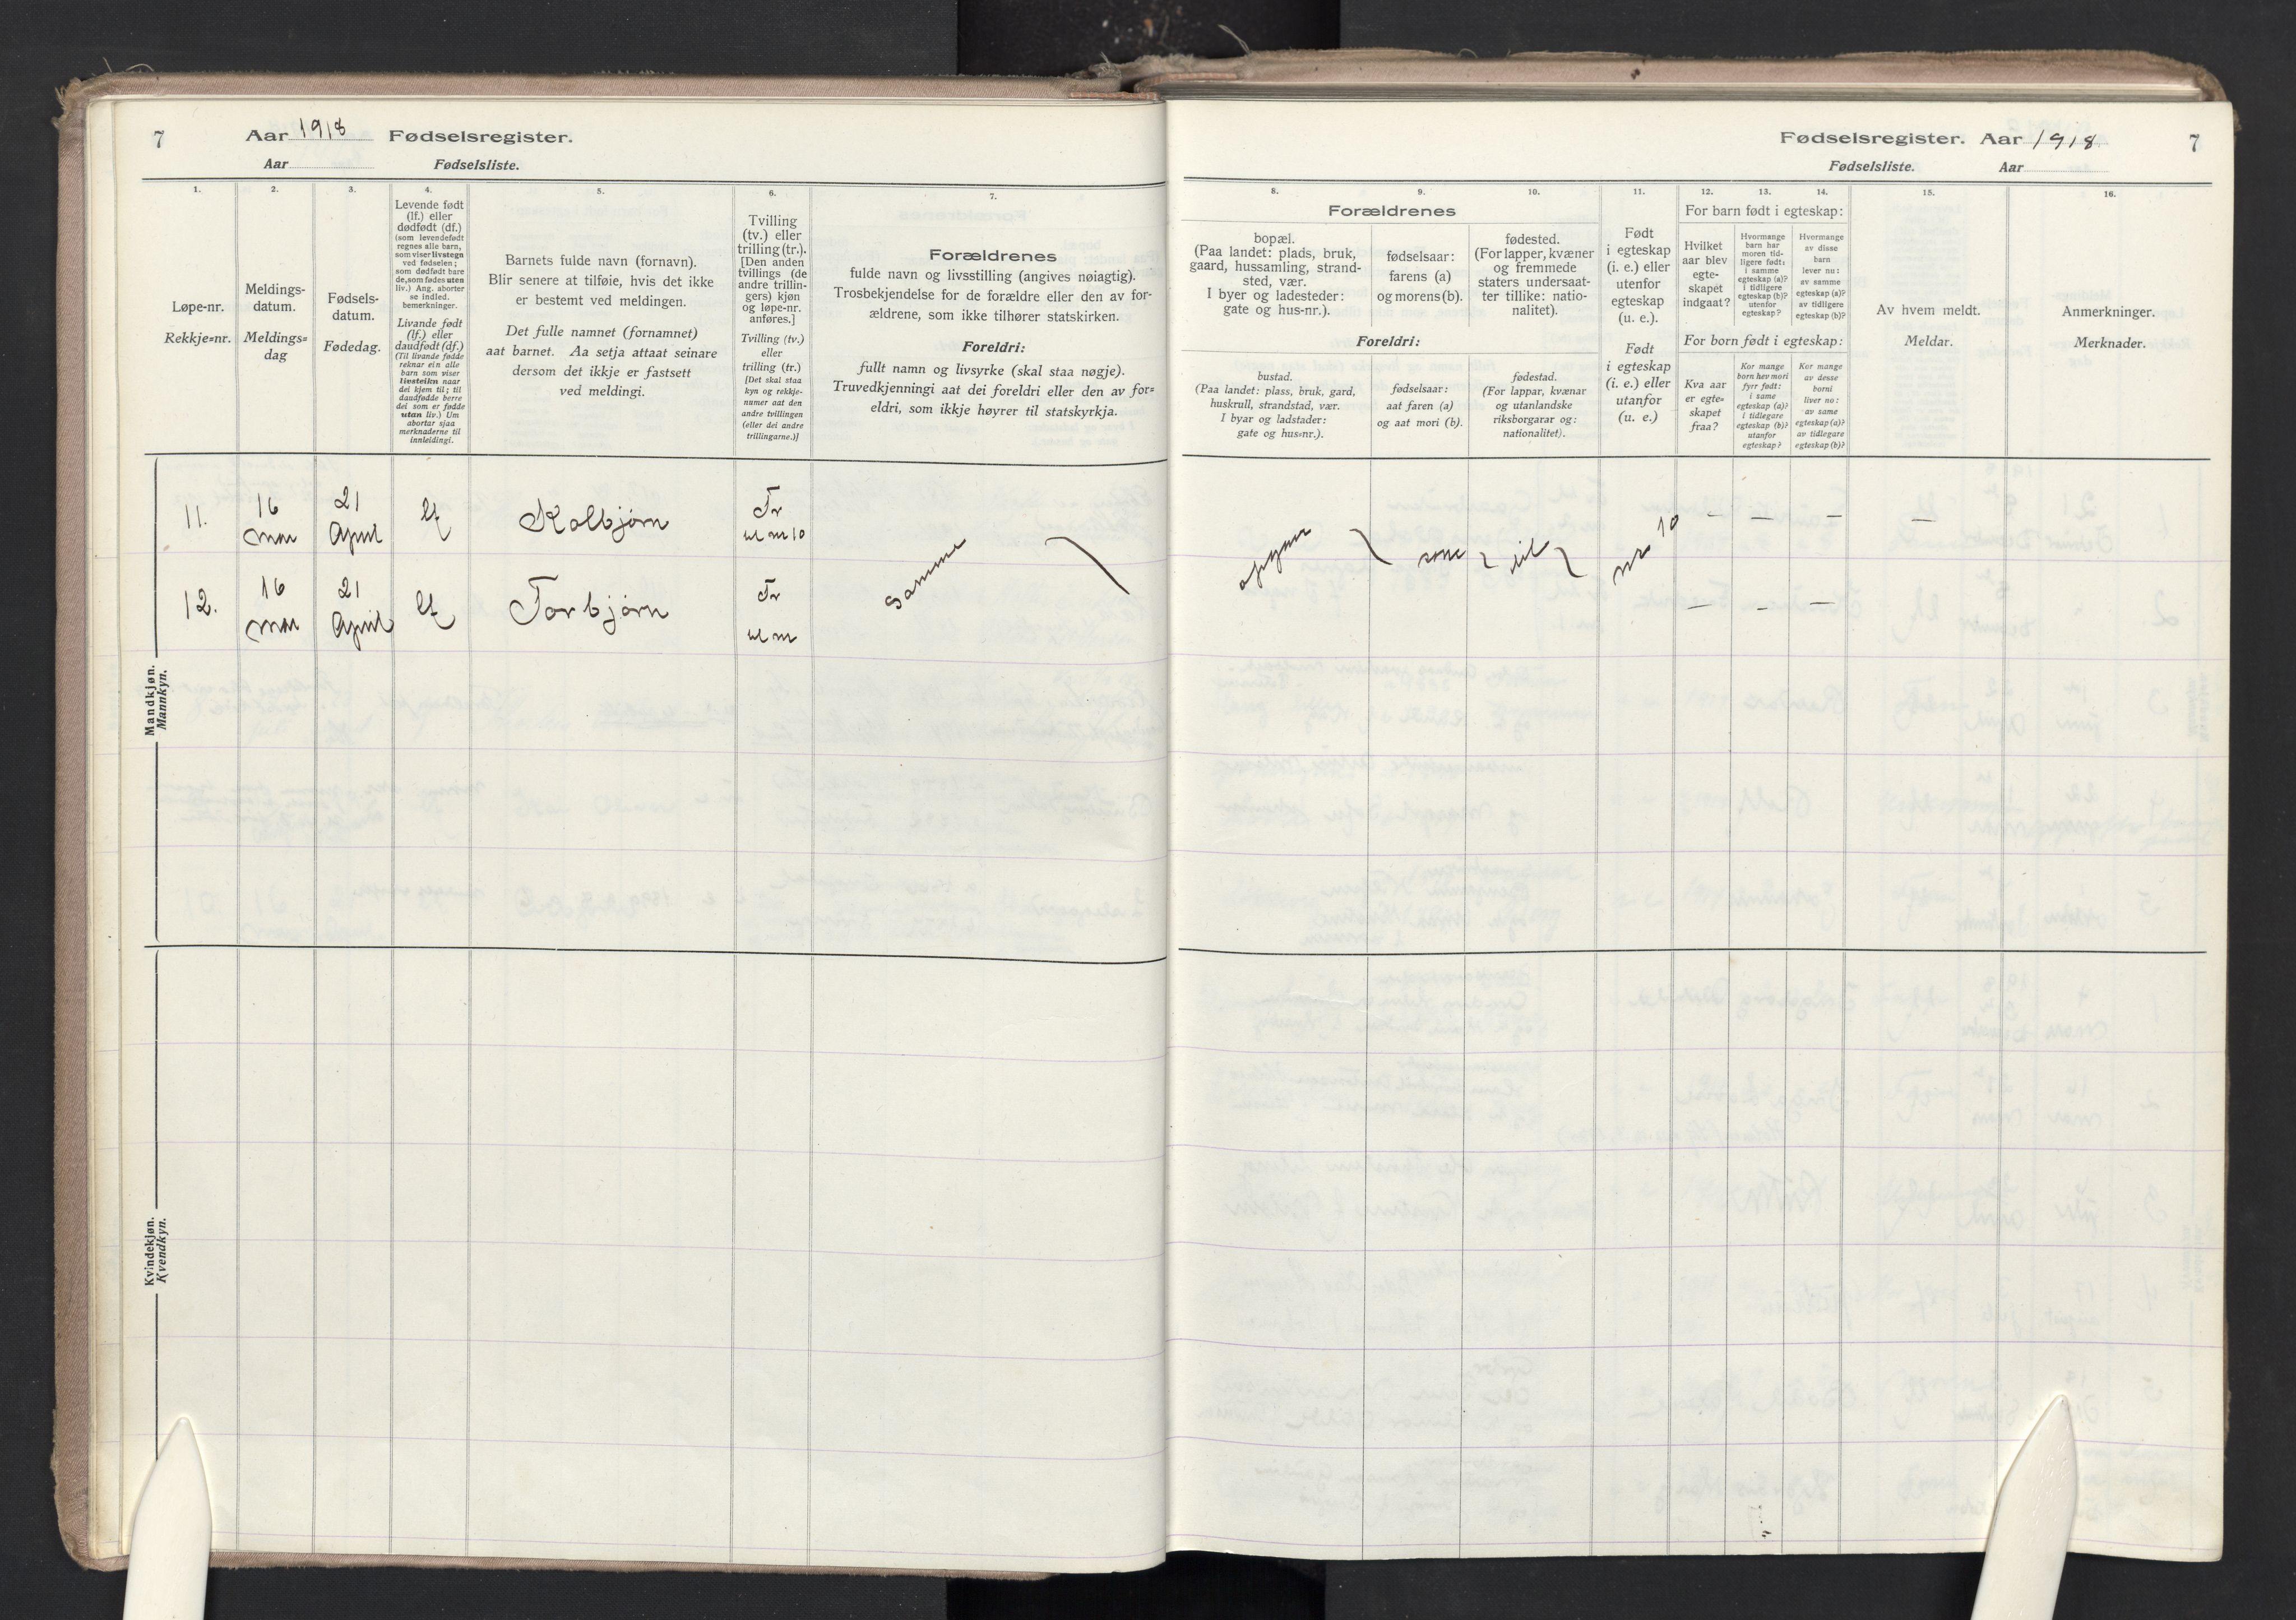 7 Aar 1918 Fødselsregister.
Aar Fødselsliste.
1.
Løpe-nr.
Rekkje=nr.
2.
Meldings-
datum.
Meldings=
dag
3.
Fødsels-
datum.
Fødedag.
4.
Levende født
(lf.) eller
dødfødt (df.)
(som levendefødt
regnes alle barn,
som viser livstegn
ved fødselen;
som dødfødt bare
de, som fødes uten
liv.) Ang. aborter
se indled.
bemerkninger.
Livande født
(lf.) eller
daudfødt (df.)
(Til livande fødde
reknar ein alle
barn som viser
livsteikn naar
dei kjem til; til
daudfødde berre
dei som er fødde
utan liv.) Um
abortar sjaa
merknaderne til
innleidingi.
5.
Barnets fulde navn (fornavn).
Blir senere at tilføie, hvis det ikke
er bestemt ved meldingen.
Det fulle namnet (fornamnet)
aat barnet. Aa setja attaat seinare
dersom det ikkje er fastsett
ved meldingi.
6.
Tvilling
(tv.) eller
trilling (tr.).
[Den anden
tvillings (de
andre trillin-
gers) kjøn
og løpe-nr.
anføres.]
Tvilling (tv.)
eller
trilling (tr.)
[Det skal staa
kyn og rekkje-
numer aat den
andre tvillingen
(eller dei andre
trillingarne.)]
7.
Forældrenes
fulde navn og livsstilling (angives nøiagtig).
Trosbekjendelse for de forældre eller den av for-
ældrene, som ikke tilhører statskirken.
Foreldri:
fullt namn og livsyrke (skal staa nøgje).
Truvedkjenningi aat dei foreldri eller den av for=
eldri, som ikkje høyrer til statskyrkja.
Mandkjøn.
Mannkyn.
11.
16
mai
21
April
lf
Kolbjørn
Tr
nr 10
12.
16
mai
21
April
lf
Torbjørn
Tr
samme
Kvindekjøn.
Kvendkyn.
Fødselsregister. Aar 1918 7
Fødselsliste. Aar
8. 9. 10.
Forældrenes
bopæl.
(Paa landet: plads, bruk,
gaard, hussamling, strand-
sted, vær.
I byer og ladesteder:
gate og hus-nr.).
fødselsaar:
farens (a)
og morens (b).
fødested.
(For lapper, kvæner
og fremmede
staters undersaat-
ter tillike: natio-
nalitet).
Foreldri:
bustad.
(Paa landet: plass, bruk, gard,
huskrull, strandstad, vær.
I byar og ladstader:
gate og hus=nr.).
fødselsaar:
aat faren (a)
og aat mori (b).
fødestad.
(For lappar, kvænar
og utanlandske
riksborgarar og:
nationalitet).
11.
Født
i egteskap
(i. e.) eller
utenfor
egteskap
(u. e.).
Født
i egteskap
(i. e.) eller
utanfor
(u. e.)
12. 13. 14.
For barn født i egteskap:
Hvilket
aar blev
egte-
skapet
indgaat?
Hvormange
barn har
moren tid-
ligere født:
i samme
egteskap (a)?
i tidligere
egteskap (b)?
utenfor
egteskap?
Hvormange
av disse
barn
lever nu:
av samme
egteskap (a)?
av tidligere
egteskap (b)?
For born født i egteskap:
Kva aar
er egte=
skapet
fraa?
Kor mange
born hev mori
fyrr født:
i same
egteskap (a)?
i tidlegare
egteskap (b)?
utanfor
egteskap?
Kor mange
av desse
borni
liver no:
av same
egteskap (a)?
av tidlegare
egteskap (b)?
15.
Av hvem meldt.
Meldar.
16.
Anmerkninger.
Merknader.
som
nr 10
— — — —
— — —